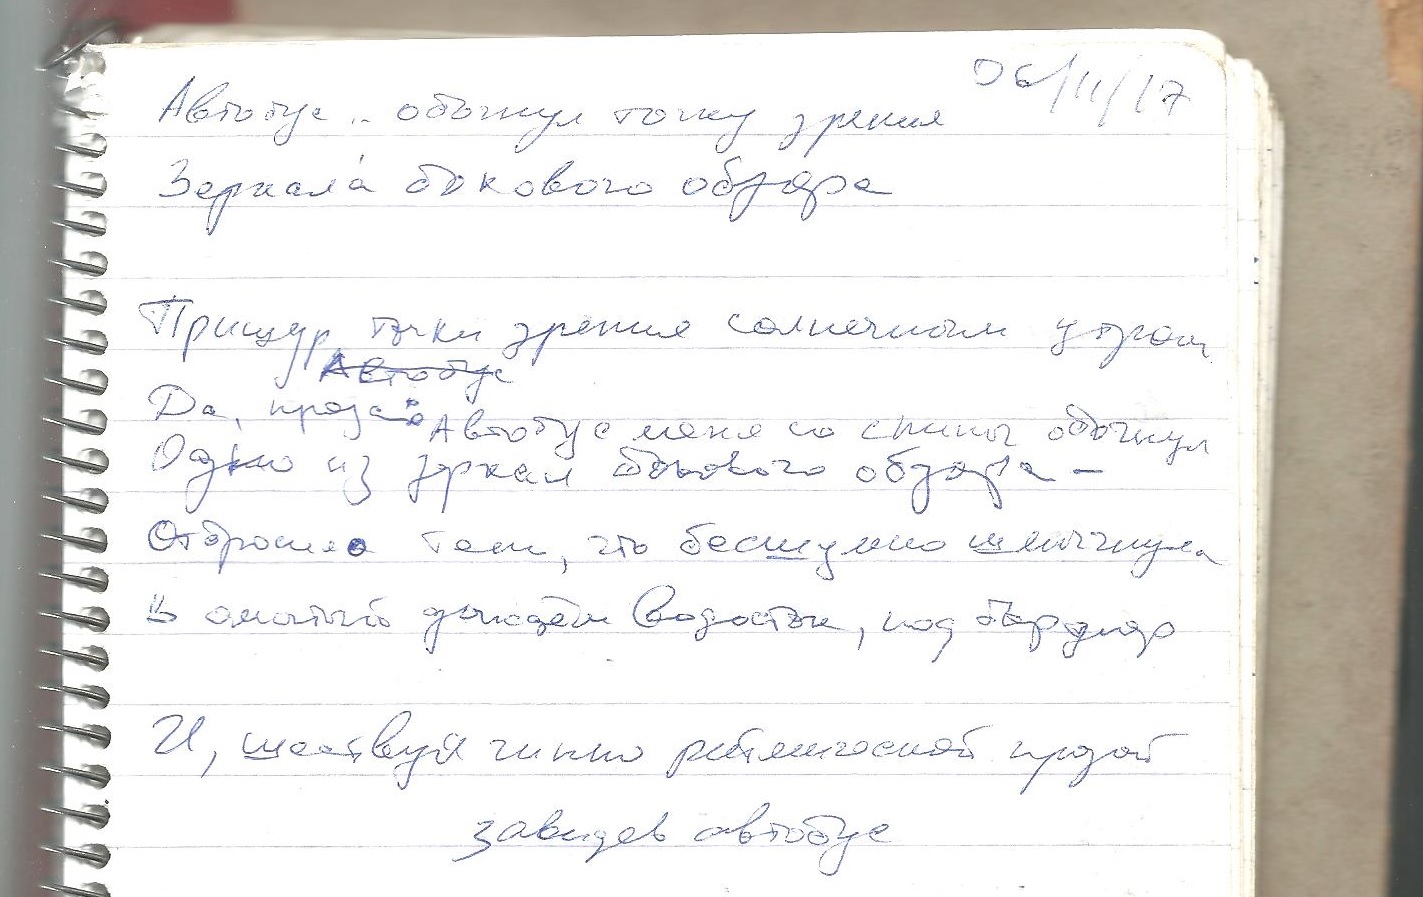 06/11/17
Автобус .. обогнул точку зрения
Зеркала́ бокового обзора
Прищур точки зрения солнечным утром
Автобус
Да, проза Автобус меня со спины обогнул
Одно из зеркал бокового обзора –
Отбросило тень, что бесшумно шмыгнула
В омытый дождём водосток, под бордюр
И, шествуя чинно ритмической прозой
завидев автобус